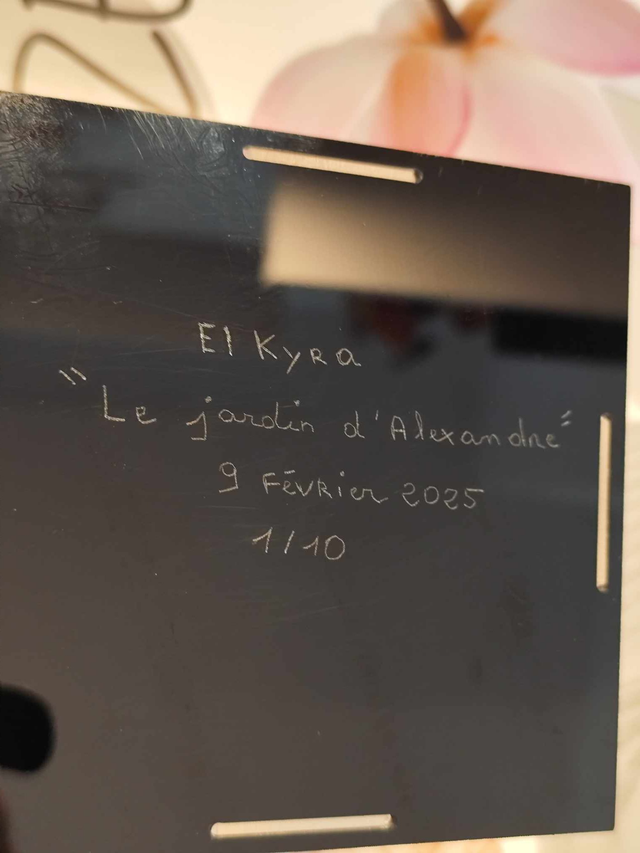 El Kyra
"Le jardin d'Alexandre"
9 Février 2025
1/10